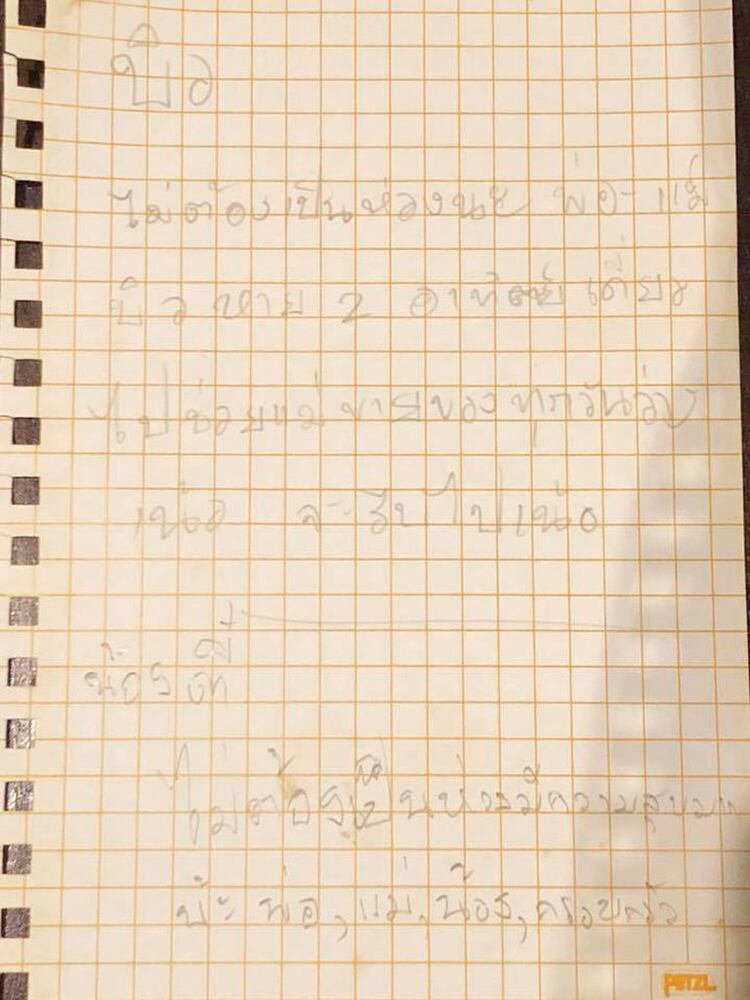 บิว
ไม่ต้องเป็นห่วงนะ พ่อ-แม่
บิวหาย 2 อาทิตย์เดี๋ยว
ไปช่วยแม่ขายของทุกวัน
จะรีบไป
น้อง
ไม่ต้องเป็นห่วงมีความสุขมาก
พ่อ, แม่, น้อง, ครอบครัว
PETZL